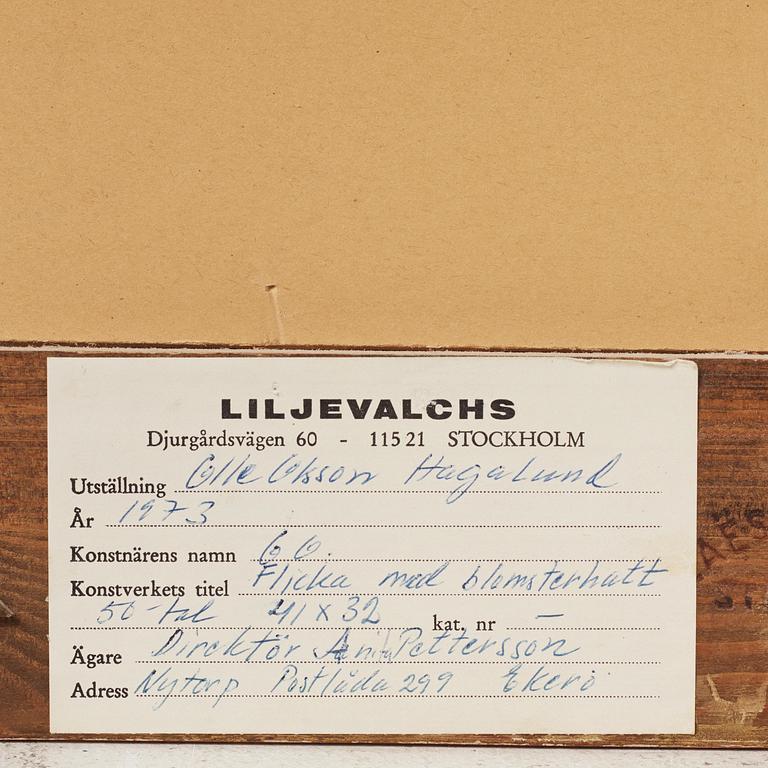 LILJEVALCHS
Djurgårdsvägen 60 - 115 21 STOCKHOLM
Utställning Olle Olsson Hagalund
År 1973
Konstnärens namn O O.
Konstverkets titel Flicka med blomsterhatt
50-tal 41 x 32 kat. nr —
Ägare Direktör Pettersson
Adress Nytorp Postlåda 299 Ekerö